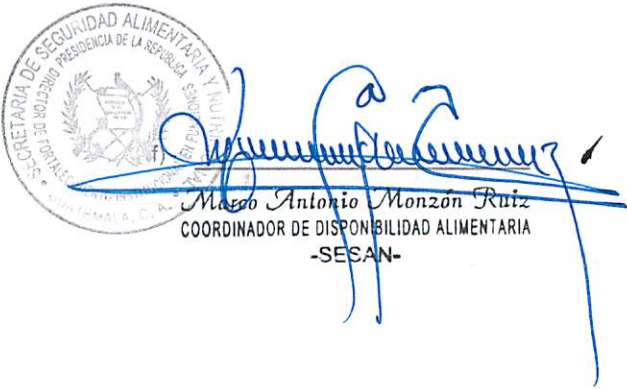 SECRETARIA DE SEGURIDAD ALIMENTARIA Y NUTRI
PRESIDENCIA DE LA REPUBLICA
DIRECTOR DE FORTALECIMIENTO INSTITUCIONAL EN FUNCIONES
GUATEMALA, C. A.
f)
Marco Antonio Monzón Ruiz
COORDINADOR DE DISPONIBILIDAD ALIMENTARIA
-SESAN-